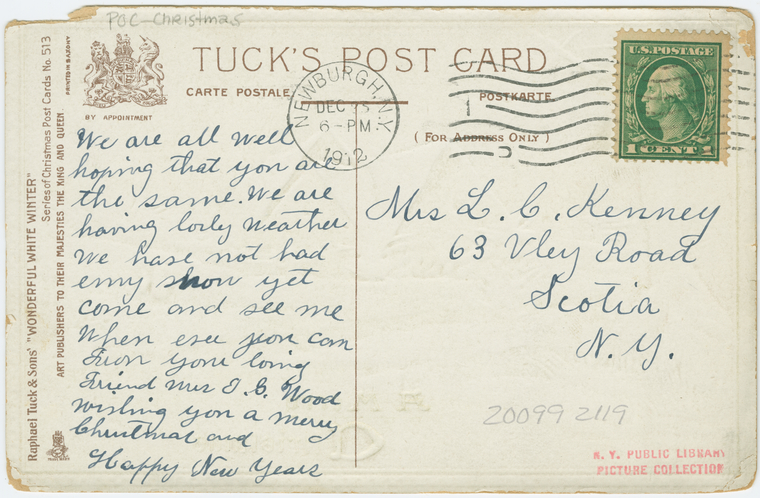 POC-Christmas
TUCK'S POST CARD
CARTE POSTALE
POSTKARTE
( FOR ADDRESS ONLY )
BY APPOINTMENT
PRINTED IN SAXONY
Raphael Tuck & Sons' "WONDERFUL WHITE WINTER"
Series of Christmas Post Cards No. 513
ART PUBLISHERS TO THEIR MAJESTIES THE KING AND QUEEN
NEWBURGH, N.Y.
DEC
6-PM
1912
1
U.S. POSTAGE
1 CENT 1
We are all well
hoping that you are
the same. We are
having lovly weather
We have not had
enny snow yet
come and see me
When ever you can
From your loving
Friend Mrs J. C. Wood
wishing you a merry
Christmas and
Happy New Years
Mrs L. C. Kenney
63 Vley Road
Scotia
N. Y.
20099 2119
N. Y. PUBLIC LIBRARY
PICTURE COLLECTION